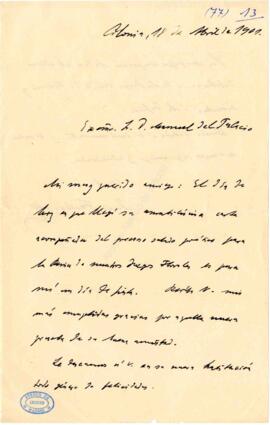 (77) 13
Colonia, 18 de Abril de 1901.
Excmo. S. D. Manuel del Palacio
Mi muy querido amigo: El día de
hoy en que llegó su amabilísima carta
acompañada del precioso saludo poético para
la Reina de nuestros Juegos Florales es para
mí un día de fiesta. Reciba V. mis
más cumplidas gracias por aquella nueva
prueba de su buena amistad.
Le deseamos á V. en su nueva habitación
todo género de felicidades.